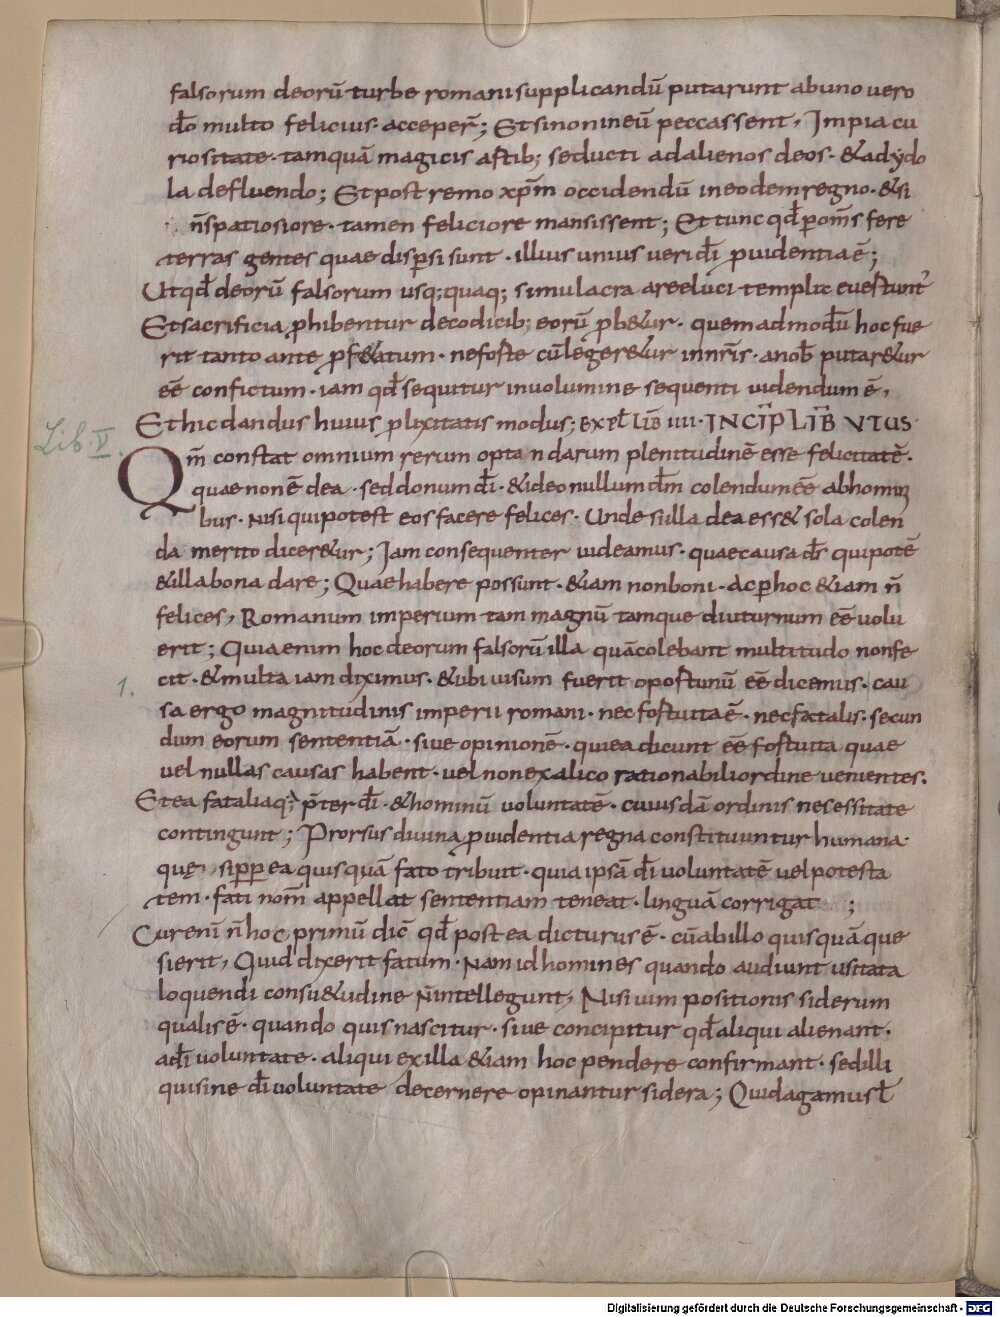 falsorum deorū turbe romani supplicandū putarunt ab uno vero
dō multo felicius· acceper̄; Et si non in eū peccassent, Impia cu
riositate· tamquā magicis artib; seducti ad alienos deos· & ad ydo
la defluendo; Et postremo xp̄m occidendū in eodem regno· & si
n̄ spatiosiore· tamen feliciore mansissent; Et tunc qd̄ p om̄s fere
terras gentes quae dispersi sunt· illius unius veri dī puidentia ē;
Ut qd̄ deorū falsorum usq; quaq; simulacra are luci templa evertunt̄
Et sacrificia phibentur de codicib; eorū pb&ur· quem ad modū hoc fue
rit tanto ante pf&atum· ne forte cū leger&ur in nr̄is· a nob̄ putar&ur
eē confictum· iam qd̄ sequitur in volumine sequenti videndum ē,
Et hic dandus huius plixitatis modus; EXPL̄ LIB̄ IIII· INCIP̄ LIB̄ VTUS·
Lib. V.
Qm̄ constat omnium rerum optandarum plenitudinē esse felicitatē·
quae non ē dea· sed donum dī· & ideo nullum dm̄ colendum eē ab homini
bus· nisi qui potest eos facere felices· Unde si illa dea ess& sola colen
da merito dicer&ur; Iam consequenter videamus· qua causa ds̄ qui potē
& illa bona dare; Quae habere possunt· &iam non boni· ac p hoc &iam n̄
felices, Romanum imperium tam magnū tamque diuturnum eē volu
erit; Quia enim hoc deorum falsorū illa quā colebant multitudo non fe
cit· & multa iam diximus· & ubi visum fuerit oportunū eē dicemus· cau
1.
sa ergo magnitudinis imperii romani· nec fortuita ē· nec fatalis· secun
dum eorum sententiā· sive opinionē· qui ea dicunt eē fortuita quae
vel nullas causas habent· vel non ex alico rationabili ordine venientes.
Et ea fatalia q; p̄ter dī· & hominū voluntatē· cuiusdā ordinis nesessitate
contingunt; Prorsus divina puidentia regna constituuntur humana·
quę, si pp ea quisquā fato tribuit· quia ipsā dī voluntatē vel potesta
tem· fati nom̄ appellat sententiam teneat· linguā corrigat ;
Cur enī n̄ hoc primū dic̄ qd̄ post ea dicturus ē· cū ab illo quisquā que
sierit, Quid dixerit fatum· Nam id homines quando audiunt usitata
loquendi consu&udine n̄ intellegunt, Nisi vim positionis siderum
qualis ē· quando quis nascitur· sive concipitur qd̄ aliqui alienant·
a dī voluntate· aliqui ex illa &iam hoc pendere confirmant· sed illi
qui sine dī voluntate decernere opinantur sidera; Quid agamus l̄
Digitalisierung gefördert durch die Deutsche Forschungsgemeinschaft - DFG